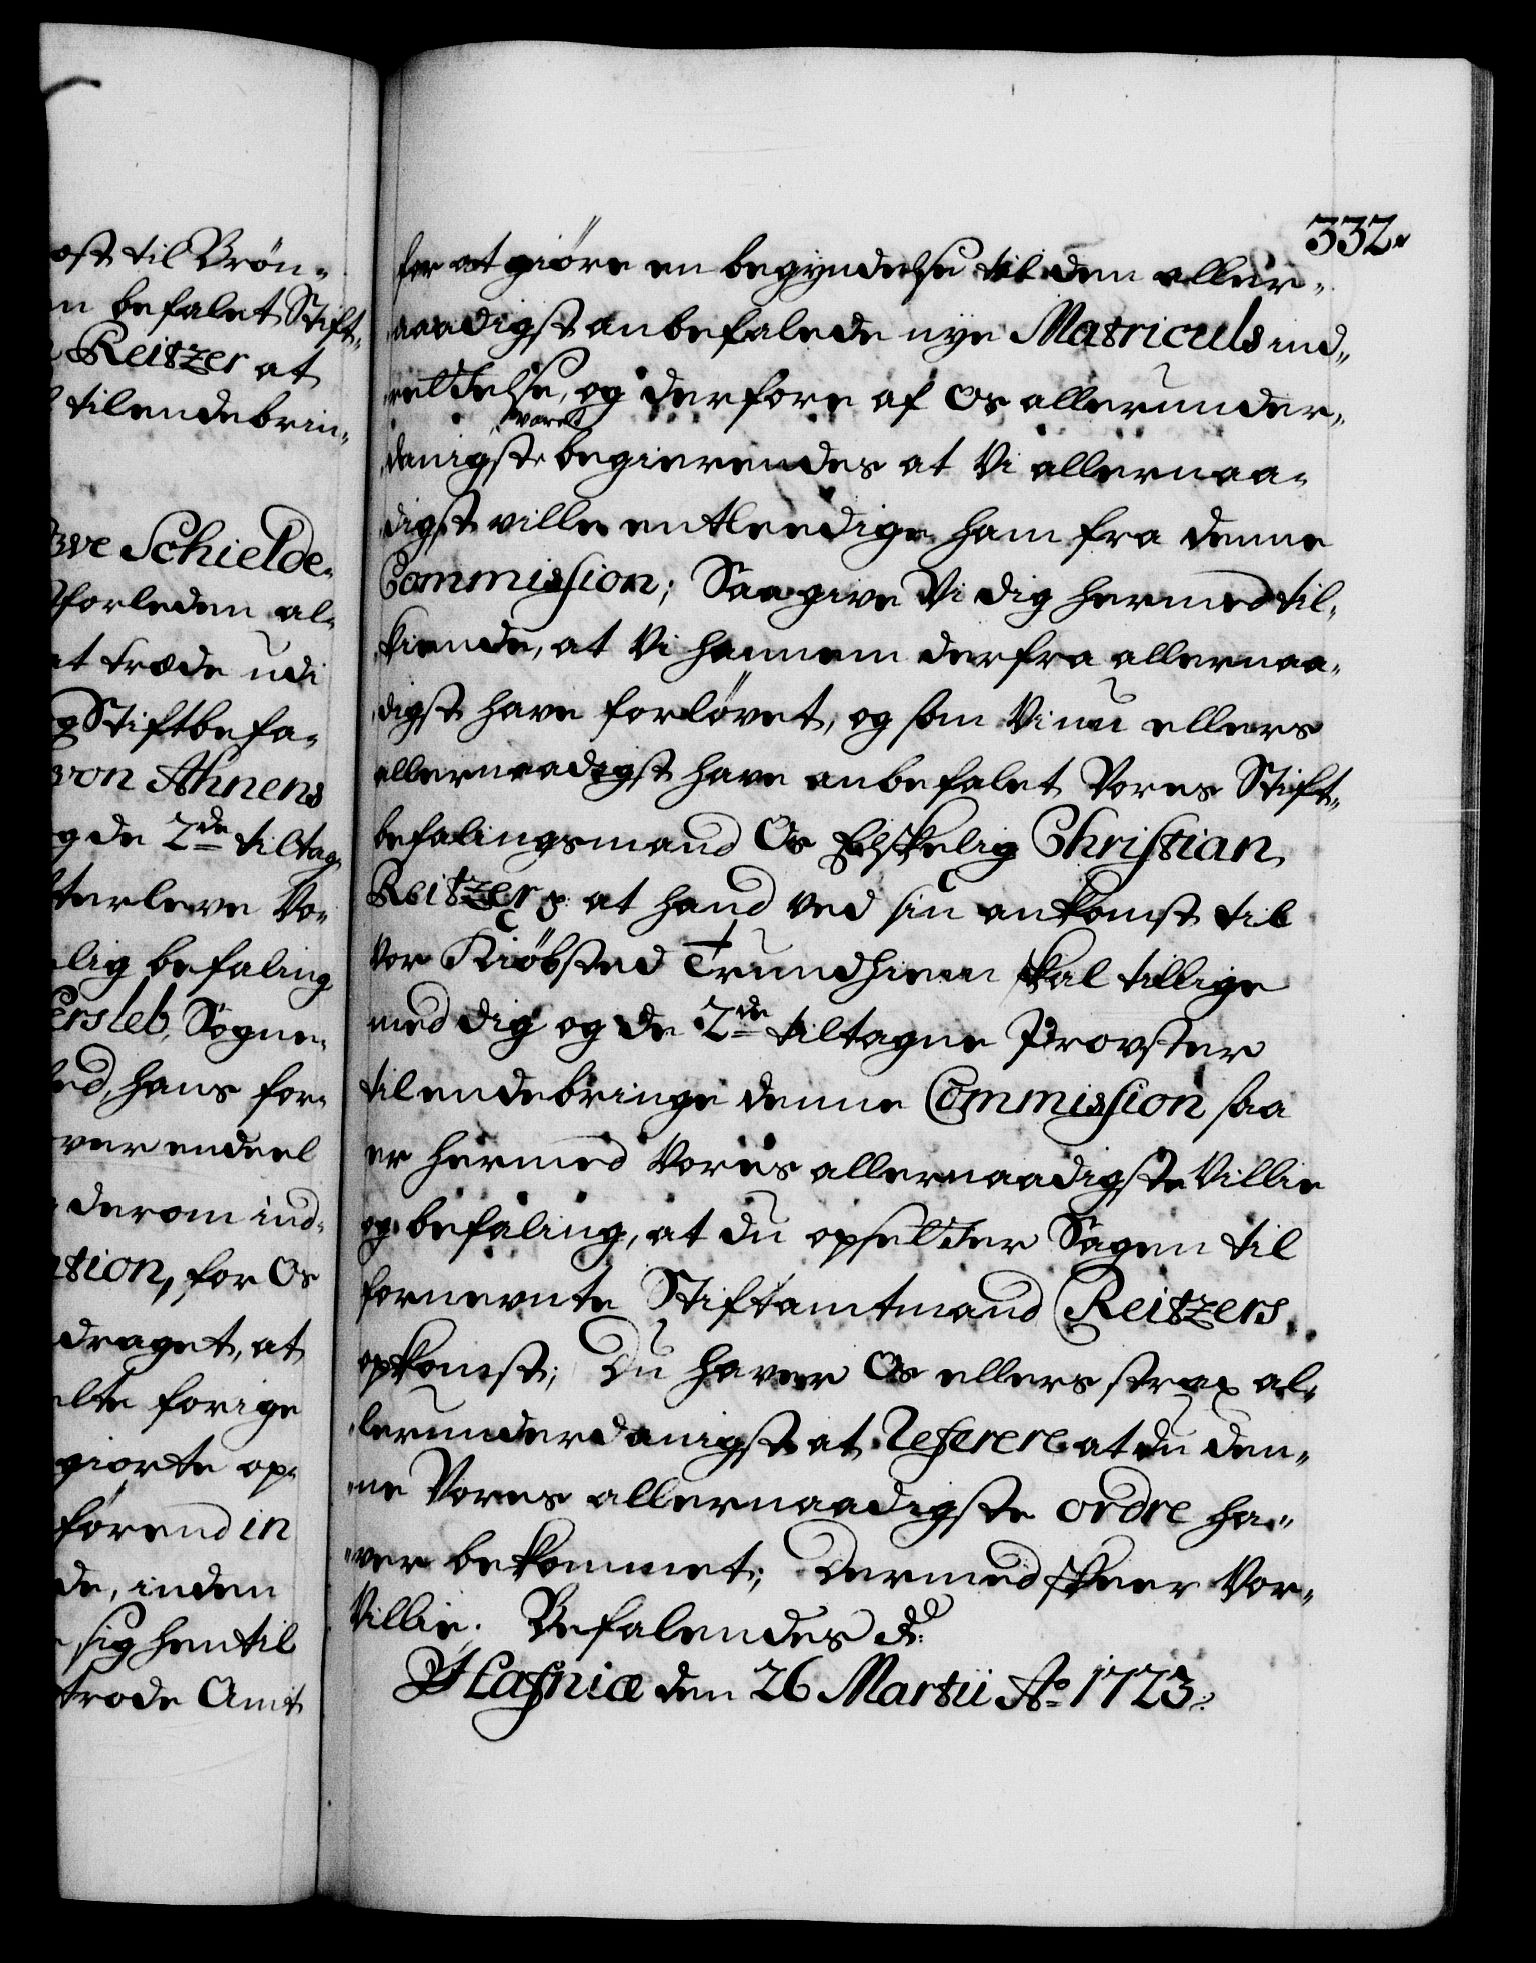 ost til Brön-
n befalet Stift-
Reitzer at
tilendebrin-
ve Schielde-
forleden al-
at træde udi
og Stiftbefa-
von Ahnens
og de 2de tiltag
terleve Vo-
lig befaling
ersleb, Sogne-
ed, hans for-
ver endeel
derom ind-
tion, for Os
draget, at
elte forige
giorte op-
förend in
de, inden
sig hentil
trode Amt
332.
for at giöre en begyndelse til den aller-
naadigst anbefalede nye Matriculs ind-
rettelse, og derfore af Os allerunder-
varet
danigst begierendes at Vi allernaa-
digst ville entleedige ham fra denne
Commission; Saa give Vi dig hermed til-
kiende, at Vi hannem derfra allernaa-
digst have forlövet, og som Vi nu ellers
allernaadigst have anbefalet Vores Stift-
befalingsmand Os Elskelig Christian
Reitzer p: at hand ved sin ankomst til
vor Kiöbsted Trundhiem skal tillige
med dig og de 2de tiltagne Provster
tilendebringe denne Commission saa
er hermed Vores allernaadigste Villie
og befaling, at du opsetter Sagen til
fornevnte Stiftamtmand Reitzers
opkomst; Du haver Os ellers strax al-
lerunderdanigst at Referere at du den-
ne Vores allernaadigste ordre ha-
ver bekommet; Dermed skeer Vor
Villie. Befalendes d:
Hafniæ den 26 Martii Ao 1723.